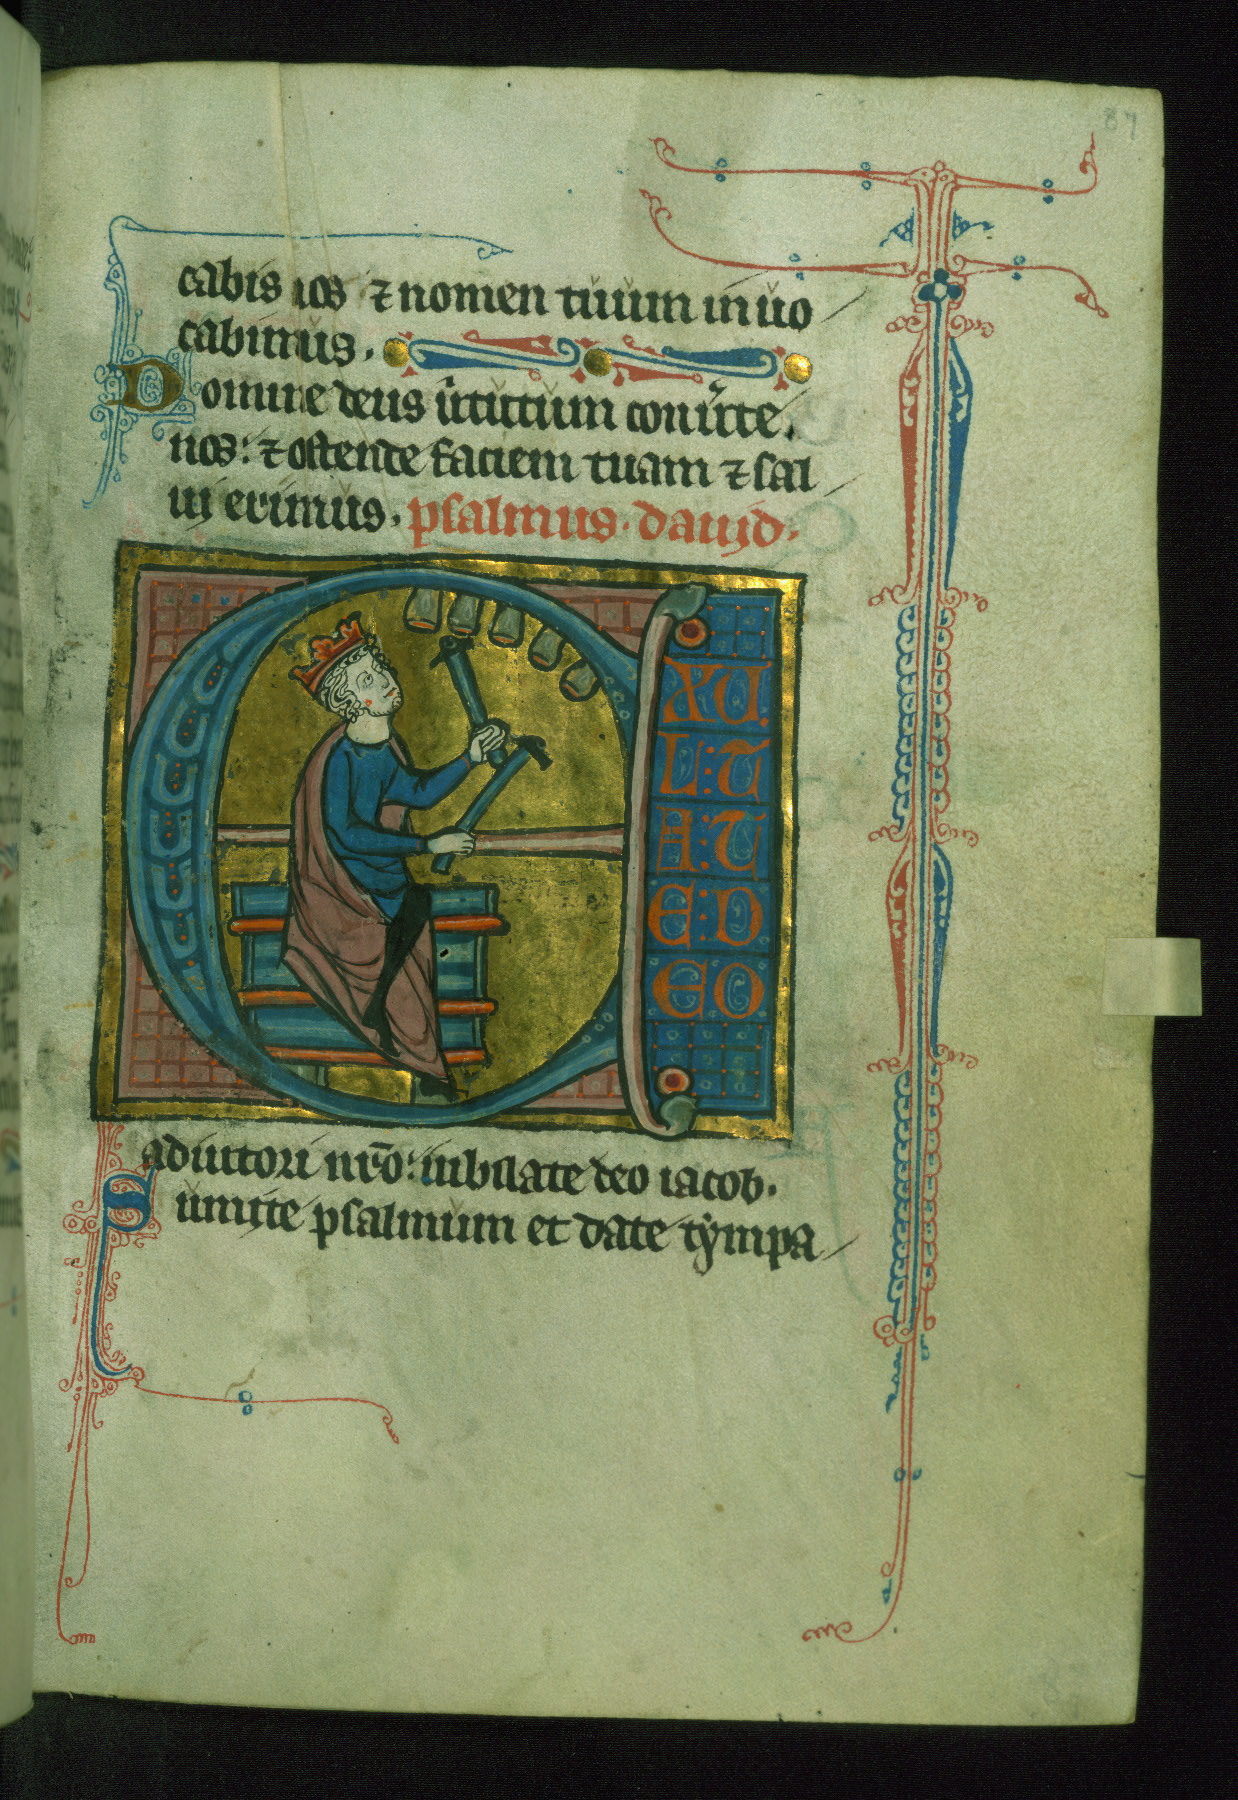 87
cabis nos ⁊ nomen tuum inuo
cabimus.
Domine deus ũtutum conũte
nos: ⁊ ostende faciem tuam ⁊ sal
uj erimus. psalmus. daujd.
EXU
L:T
A:T
E:D
EO
adiutori nr̄o: iubilate deo iacob.
Sumite psalmum et date tẏmpa